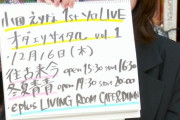 1st Yo LIVE
vol.1
12月16日(木)
往古来今 open 15:30 start 16:30
冬夏青青 open 19:30 start 20:00
eplus LIVING ROOM CAFE&DINING